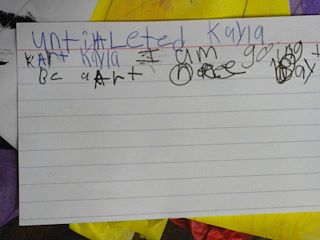 untitleted Kayla
KArt Kayla I am going t
Bc a Art